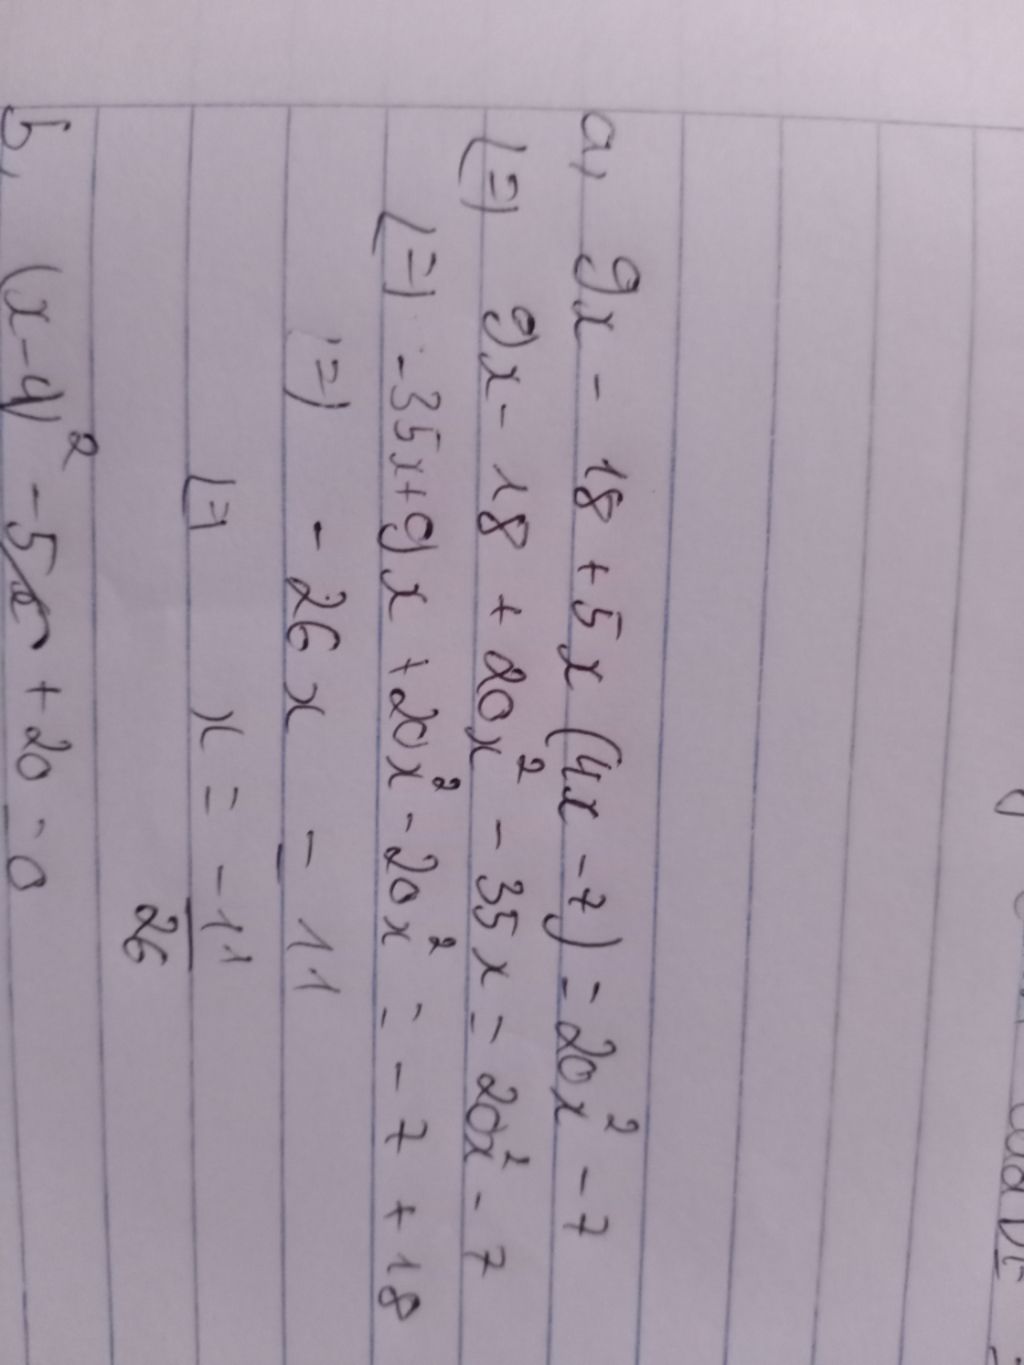 a, 9x - 18 + 5x (4x - 7) = 20x² - 7
(=) 9x - 18 + 20x² - 35x = 20x² - 7
(=) -35x + 9x + 20x² - 20x² = -7 + 18
(=) - 26x = 11
(=) x = -11/26
b, (x-4)² - 5x + 20 = 0